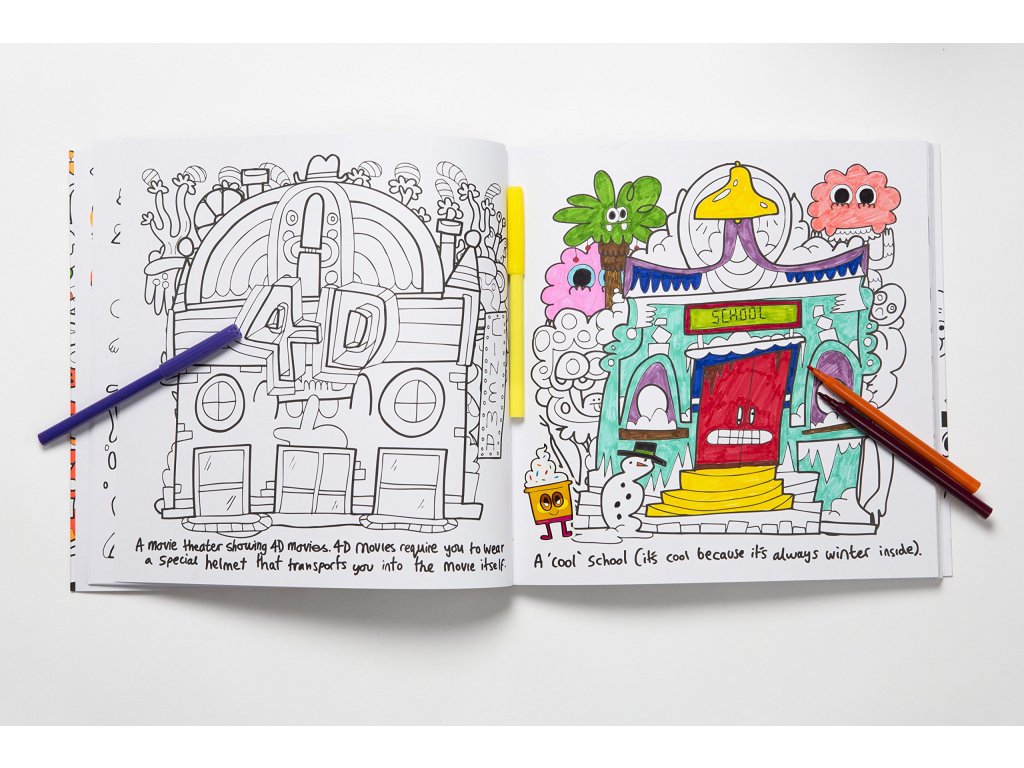 4D
CINEMA
A movie theater showing 4D movies. 4D movies require you to wear
a special helmet that transports you into the movie itself.
SCHOOL
A 'cool' school (it's cool because it's always winter inside).